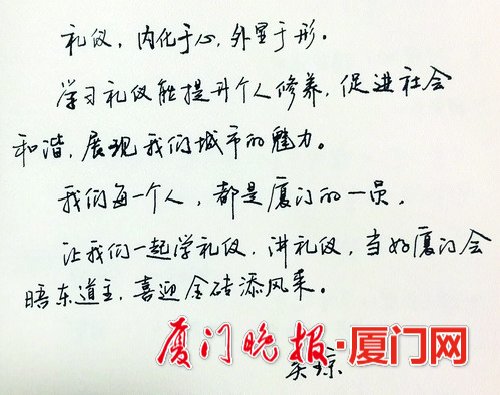 礼仪，内化于心，外显于形。
学习礼仪能提升个人修养，促进社会
和谐，展现我们城市的魅力。
我们每一个人，都是厦门的一员，
让我们一起学礼仪，讲礼仪，当好厦门会
晤东道主，喜迎金砖添风采。
厦门晚报·厦门网